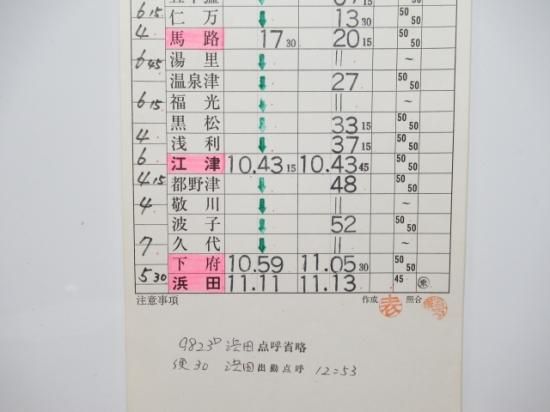 6 15 仁万 ↓ 13 30 50 50
4 馬路 17 30 20 15 50 50
6 45 湯里 ↓ 〃 ~
温泉津 ↓ 27 50 50
6 15 福光 ↓ 〃 ~
黒松 ↓ 33 15 50 50
4 浅利 ↓ 37 15 50 50
6 江津 10.43 15 10.43 45 50 50
4 15 都野津 ↓ 48 50 50
4 敬川 ↓ 〃 ~
波子 ↓ 52 50 50
7 久代 ↓ 〃 ~
下府 10.59 11.05 30 50 50
5 30 浜田 11.11 11.13 45
注意事項 作成 照合
9823D 浜田点呼省略
便30 浜田出勤点呼 12=53